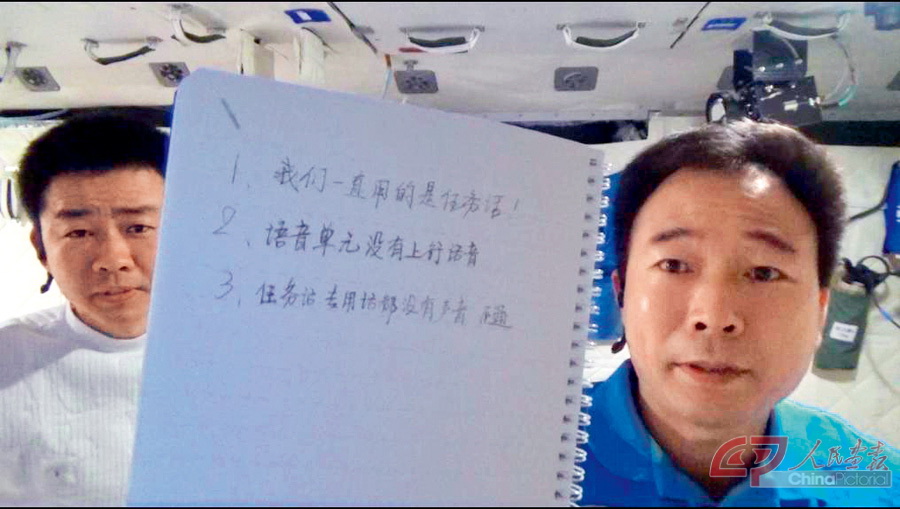 1、我们一直用的是任务话！
2、语音单元没有上行话音
3、任务话专用话都没有声音 不通
人民画报
ChinaPictorial